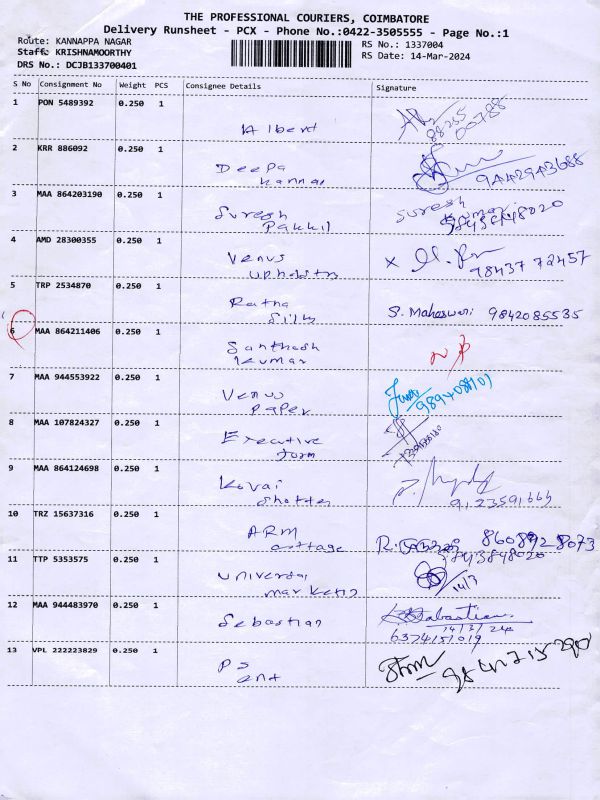 THE PROFESSIONAL COURIERS, COIMBATORE
Delivery Runsheet - PCX - Phone No.:0422-3505555 - Page No.:1
Route: KANNAPPA NAGAR
RS No.: 1337004
Staff: KRISHNAMOORTHY
RS Date: 14-Mar-2024
DRS No.: DCJB133700401
S No Consignment No Weight PCS Consignee Details Signature
1 PON 5489392 0.250 1
Albert
88255
00788
2 KRR 886092 0.250 1
Deepa
kannan
9442943688
3 MAA 864203190 0.250 1
Suresh
suresh
9843848020
4 AMD 28300355 0.250 1
Venus
x
98437 72457
5 TRP 2534870 0.250 1
Ratna
Silks
S. Maheswari 9842085535
6 MAA 864211406 0.250 1
Santhosh
Kumar
7 MAA 944553922 0.250 1
Venus
paper
8 MAA 107824327 0.250 1
Executive
form
9 MAA 864124698 0.250 1
Kovai
9123591663
10 TRZ 15637316 0.250 1
ARM
cottage
8608928073
9843848020
11 TTP 5353575 0.250 1
Universal
marketing
12 MAA 944483970 0.250 1
Sebastian
Sabastian
14/3/24
6374151019
13 VPL 222223829 0.250 1
PS
and